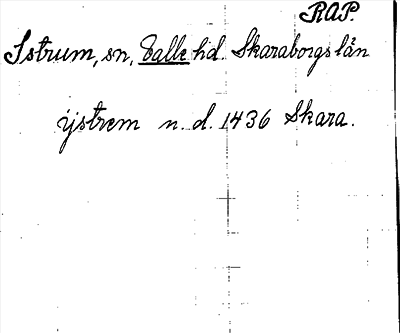 RAP.
Istrum, sn, Valle hd. Skaraborgs län
ijstrem n. d. 1436 Skara.